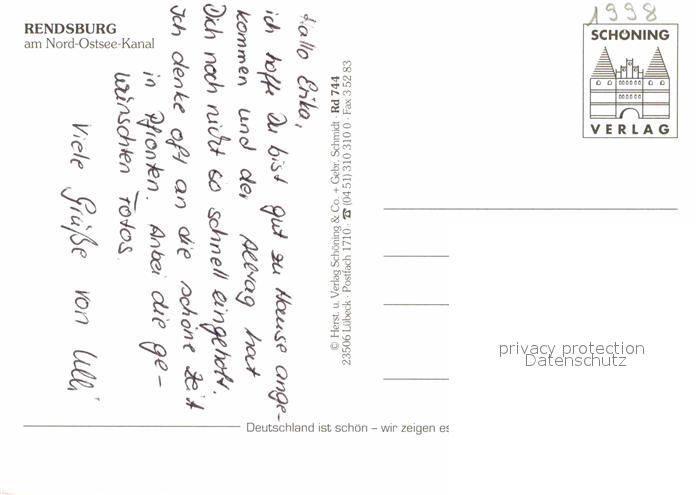 RENDSBURG
am Nord-Ostsee-Kanal
Hallo Erika,
ich hoffe Du bist gut zu Hause ange-
kommen und der Alltag hat
Dich noch nicht so schnell eingeholt.
Ich denke oft an die schöne Zeit
in Pfronten. Anbei die ge-
wünschten Fotos.
Viele Grüße von Ulli
© Herst. u. Verlag Schöning & Co. + Gebr. Schmidt · Rd 744
23506 Lübeck · Postfach 1710 · ☎ (04 51) 310 310 0 · Fax 3 52 83
1998
SCHÖNING
VERLAG
privacy protection
Datenschutz
Deutschland ist schön – wir zeigen es